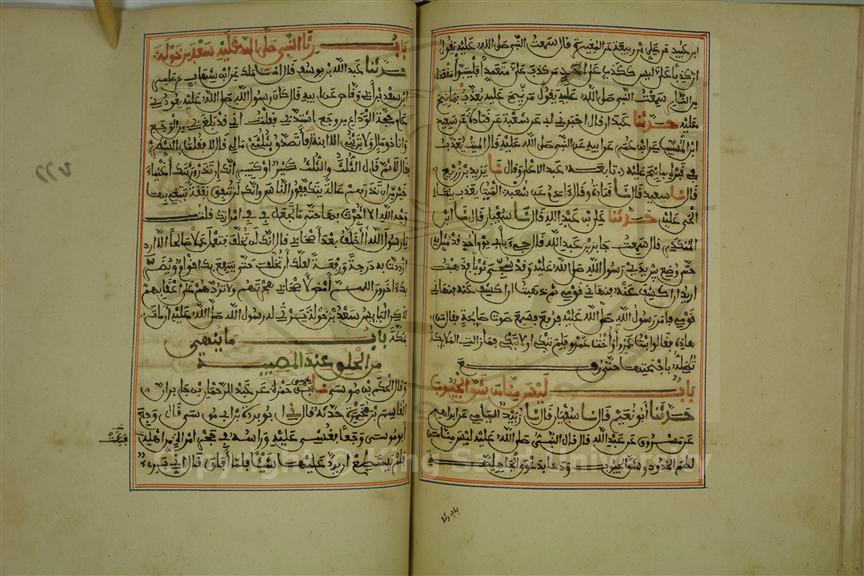 ابن عبيد عن علي بن ربيعة عن المغيرة قال سمعت النبي صلى الله عليه يقول
ان كذبا علي ليس ككذب على احد من كذب علي متعمدا فليتبوأ مقعده
من النار سمعت النبي صلى الله عليه يقول من نيح عليه يعذب بما نيح
عليه حدثنا عبدان قال اخبرني ابي عن شعبة عن قتادة عن سعيد
ابن المسيب عن ابن عمر عن ابيه عن النبي صلى الله عليه قال الميت يعذب
في قبره بما نيح عليه تابعه عبد الاعلى وقال نا يزيد بن زريع
قال نا سعيد قال نا قتادة وقال آدم عن شعبة الميت يعذب ببكاء
الحي عليه حدثنا علي بن عبد الله قال نا سفيان قال نا ابن
المنكدر قال سمعت جابر بن عبد الله قال جيء بأبي يوم أحد قد مثل به
حتى وضع بين يدي رسول الله صلى الله عليه وقد سجي ثوبا فذهبت
اريد ان اكشف عنه فنهاني قومي ثم ذهبت اكشف عنه فنهاني
قومي فامر رسول الله صلى الله عليه فرفع فسمع صوت صائحة فقال من
هذه فقالوا بنت عمرو أو أخت عمرو قال فلم تبكي أو لا تبكي فما زالت الملائكة
تظله بأجنحتها حتى رفع
باب ليس منا من شق الجيوب
حدثنا أبو نعيم قال نا سفيان قال نا زبيد اليامي عن ابراهيم
عن مسروق عن عبد الله قال قال النبي صلى الله عليه ليس منا من
لطم الخدود وشق الجيوب ودعا بدعوى الجاهلية
باب رثا
باب رثا النبي صلى الله عليه سعد بن خولة
حدثنا عبد الله بن يوسف قال انا ملك عن ابن شهاب عن عامر
ابن سعد بن أبي وقاص عن ابيه قال كان رسول الله صلى الله عليه يعودني
عام حجة الوداع من وجع اشتد بي فقلت اني قد بلغ بي من الوجع
وانا ذو مال ولا يرثني الا ابنة أفأتصدق بثلثي مالي قال لا فقلت بالشطر
فقال لا ثم قال الثلث والثلث كبير او كثير انك ان تذر ورثتك أغنياء
خير من ان تذرهم عالة يتكففون الناس وانك لن تنفق نفقة تبتغي بها
وجه الله الا أجرت بها حتى ما تجعل في في امرأتك فقلت
يا رسول الله أخلف بعد أصحابي قال انك لن تخلف فتعمل عملا صالحا الا
ازددت به درجة ورفعة لعلك أن تخلف حتى ينتفع بك أقوام ويضر
بك آخرون اللهم أمض لأصحابي هجرتهم ولا تردهم على أعقابهم
لاكن البائس سعد بن خولة يرثي له رسول الله صلى الله عليه ان مات
بمكة باب ما ينهى
من الحلق عند المصيبة
وقال الحكم بن موسى نا يحيى بن حمزة عن عبد الرحمن بن جابر ان
القاسم بن مخيمرة حدثه قال ني ابو بردة بن ابي موسى قال وجع
ابو موسى وجعا فغشي عليه ورأسه في حجر امرأة من اهله
فلم يستطع ان يرد عليها شيئا فلما أفاق قال اني بريء